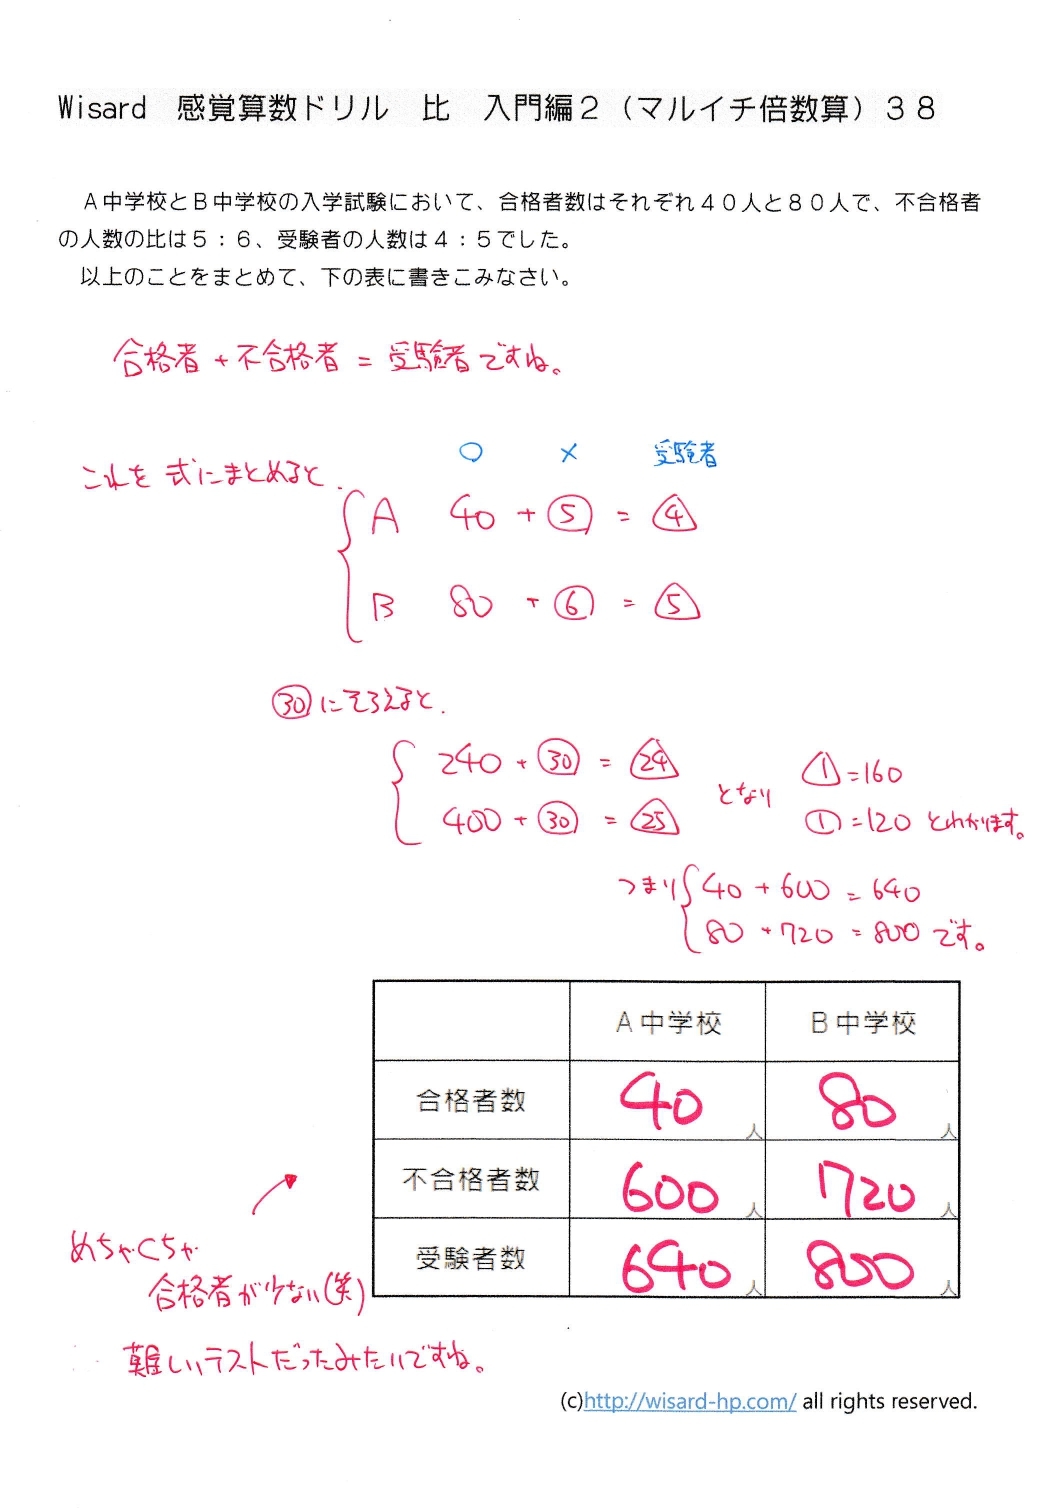 Wisard　感覚算数ドリル　比　入門編２（マルイチ倍数算）３８
Ａ中学校とＢ中学校の入学試験において、合格者数はそれぞれ４０人と８０人で、不合格者
の人数の比は５：６、受験者の人数は４：５でした。
以上のことをまとめて、下の表に書きこみなさい。
合格者 + 不合格者 = 受験者ですね。
○ × 受験者
これを 式にまとめると、
A 40 + ⑤ = △4
B 80 + ⑥ = △5
㉚にそろえると、
240 + ㉚ = △24
400 + ㉚ = △25
となり
△1 = 160
① = 120 とわかります。
つまり 40 + 600 = 640
80 + 720 = 800 です。
Ａ中学校 Ｂ中学校
合格者数 40人 80人
不合格者数 600人 720人
受験者数 640人 800人
めちゃくちゃ
合格者が少ない(笑)
難しいテストだったみたいですね。
(c)http://wisard-hp.com/ all rights reserved.